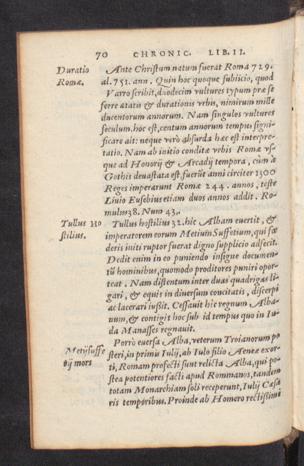 70 CHRONIC. LIB. II.
Duratio Romæ.
Ante Christum natum fuerat Roma 729.
al. 751. ann. Quin hoc quoque subiicio, quod
Varro scribit, duodecim vultures typum præ se
ferre ætatũ & durationis vrbis, nimirum mille
ducentorum annorum. Nam singulos vultures
seculum. hoc est, centum annorum tempus signi-
ficare ait: neque verò absurda hæc est interpre-
tatio. Nam ab initio conditæ vrbis Romæ vs-
que ad Honorij & Arcadij tempora, cùm à
Gothis deuastata est fuerũt anni circiter 1300
Reges imperarunt Romæ 244. annos, teste
Liuio Eusebius etiam duos annos addit. Ro-
mulus 38. Num 43.
Tullus Ho
stilius.
Tullus hostilius 32. hic Albam euertit, &
imperatorem eorum Metium Suffetium, qui fœ
deris initi ruptor fuerat digno supplicio adfecit.
Dedit enim in eo puniendo insigne documen-
tũ hominibus, quomodo proditores puniri opor-
teat. Nam distentum inter duas quadrigas li-
gari, & equis in diuersum concitatis, discerpi
ac lacerari iussit. Cessauit hic regnum Alba-
num, & contigit hoc sub id tempus quo in Iu-
da Manasses regnauit.
Metij suffe
tij mors
Porrò euersa Alba, veterum Troianorum po
steri, in primis Iulij, ab Iulo filio Aeneæ exor-
ti, Romam profecti sunt relicta Alba, qui po-
stea potentiores facti apud Romanos, tandem
totam Monarchiam soli receperunt, Iulij Cæsa
ris temporibus. Proinde ab Homero rectissimè